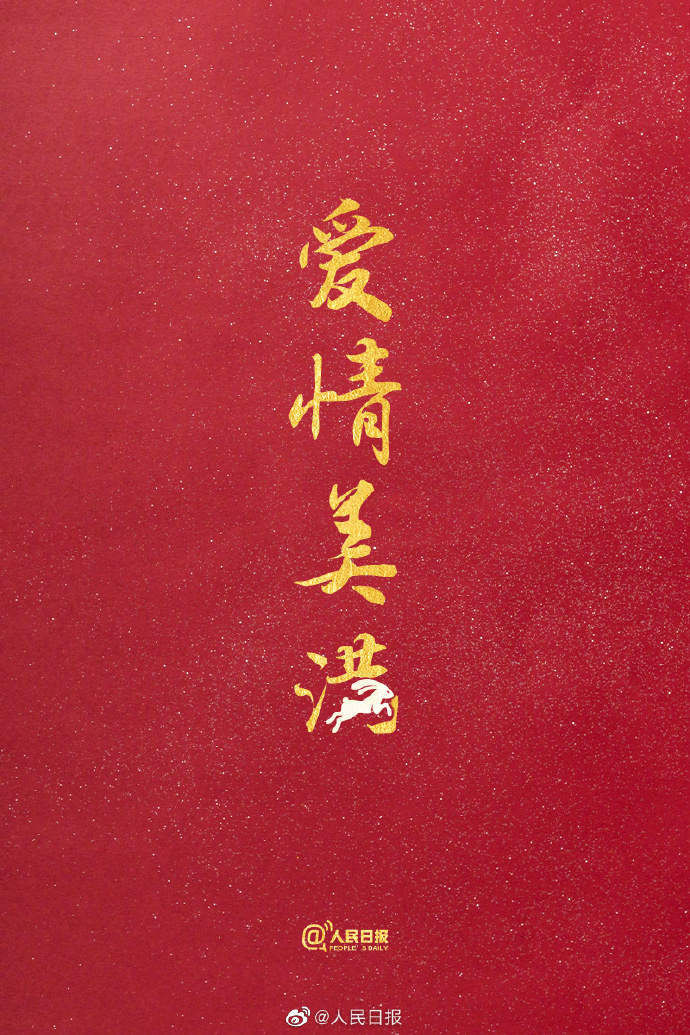 爱情美满
@人民日报
PEOPLE'S DAILY
@人民日报